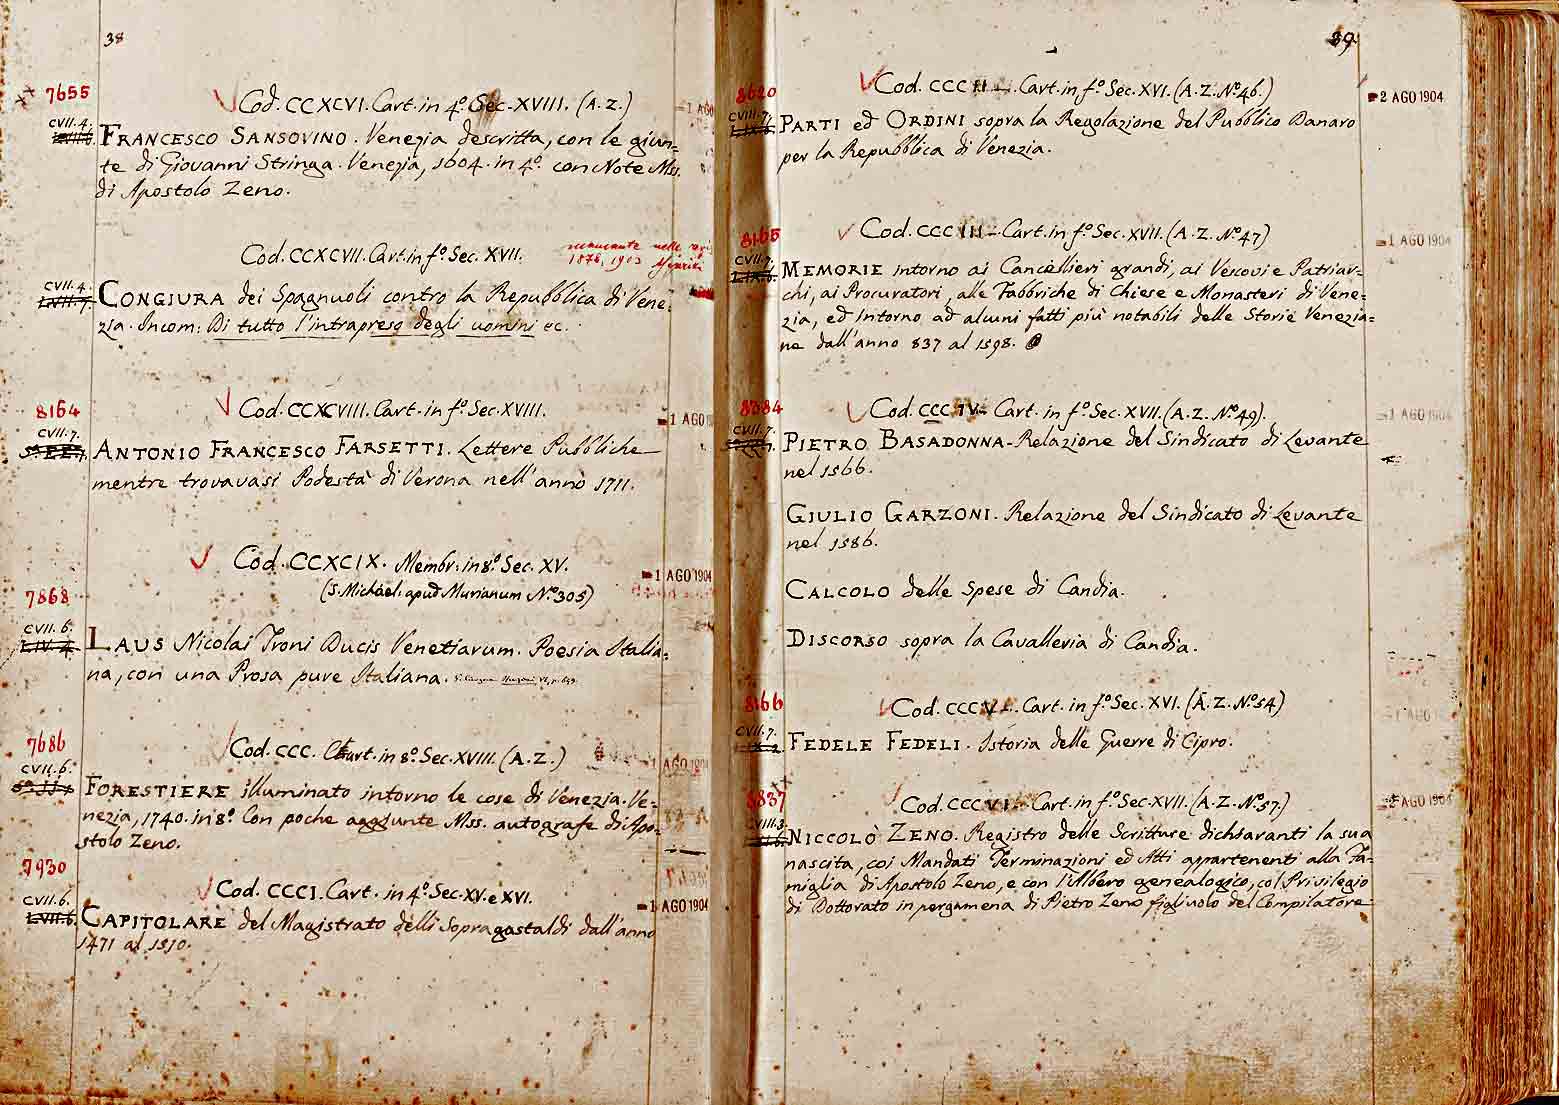 38
7655
Cod. CCXCVI. Cart. in 4º. Sec. XVIII. (A. Z.)
1 AGO
CVII. 4.
FRANCESCO SANSOVINO. Venezia descritta, con le giun=
te di Giovanni Stringa. Venezia, 1604. in 4º. con Note Mss.
di Apostolo Zeno.
Cod. CCXCVII. Cart. in fº. Sec. XVII.
mancante nelle
1878, 1903
CVII. 4.
CONGIURA dei Spagnuoli contro la Repubblica di Vene=
zia. Incom: Di tutto l'intrapreso degli uomini ec.
8164
Cod. CCXCVIII. Cart. in fº. Sec. XVIII.
1 AGO
CVII. 7.
ANTONIO FRANCESCO FARSETTI. Lettere Pubbliche
mentre trovavasi Podestà di Verona nell'anno 1711.
Cod. CCXCIX. Membr. in 8º. Sec. XV.
1 AGO 1904
(S. Michael. apud Murianum Nº. 305)
7868
CVII. 6.
LIV. 4.
LAUS Nicolai Troni Ducis Venetiarum. Poesia Italia=
na, con una Prosa pure Italiana.
7686
Cod. CCC. Cart. in 8º. Sec. XVIII. (A. Z.)
1 AGO 1904
CVII. 6.
FORESTIERE illuminato intorno le cose di Venezia. Ve=
nezia, 1740. in 8º. Con poche aggiunte Mss. autografe di Apo=
stolo Zeno.
7930
Cod. CCCI. Cart. in 4º. Sec. XV. e XVI.
CVII. 6.
1 AGO 1904
LVII. 6.
CAPITOLARE del Magistrato delli Sopragastaldi dall'anno
1471 al 1510.
39
8620
Cod. CCCII. Cart. in fº. Sec. XVI. (A. Z. Nº. 46.)
2 AGO 1904
CVIII. 7.
PARTI ed ORDINI sopra la Regolazione del Pubblico Danaro
per la Repubblica di Venezia.
8165
Cod. CCCIII. Cart. in fº. Sec. XVII. (A. Z. Nº. 47)
1 AGO 1904
CVII. 7.
MEMORIE intorno ai Cancellieri grandi, ai Vescovi e Patriar=
chi, ai Procuratori, alle Fabbriche di Chiese e Monasteri di Vene=
zia, ed intorno ad alcuni fatti più notabili delle Storie Venezia=
ne dall'anno 837 al 1598.
8384
Cod. CCCIV. Cart. in fº. Sec. XVII. (A. Z. Nº. 49).
1 AGO 1904
CVII. 7.
PIETRO BASADONNA. Relazione del Sindicato di Levante
nel 1566.
GIULIO GARZONI. Relazione del Sindicato di Levante
nel 1586.
CALCOLO delle Spese di Candia.
DISCORSO sopra la Cavalleria di Candia.
8166
Cod. CCCV. Cart. in fº. Sec. XVI. (A. Z. Nº. 54)
1 AGO 1904
CVII. 7.
FEDELE FEDELI. Istoria delle Guerre di Cipro.
8837
Cod. CCCVI. Cart. in fº. Sec. XVII. (A. Z. Nº. 57.)
AGO 1904
CVIII. 3.
NICCOLÒ ZENO. Registro delle Scritture dichiaranti la sua
nascita, coi Mandati Terminazioni ed Atti appartenenti alla Fa=
miglia di Apostolo Zeno, e con l'Albero genealogico, col Privilegio
di Dottorato in pergamena di Pietro Zeno figliuolo del Compilatore